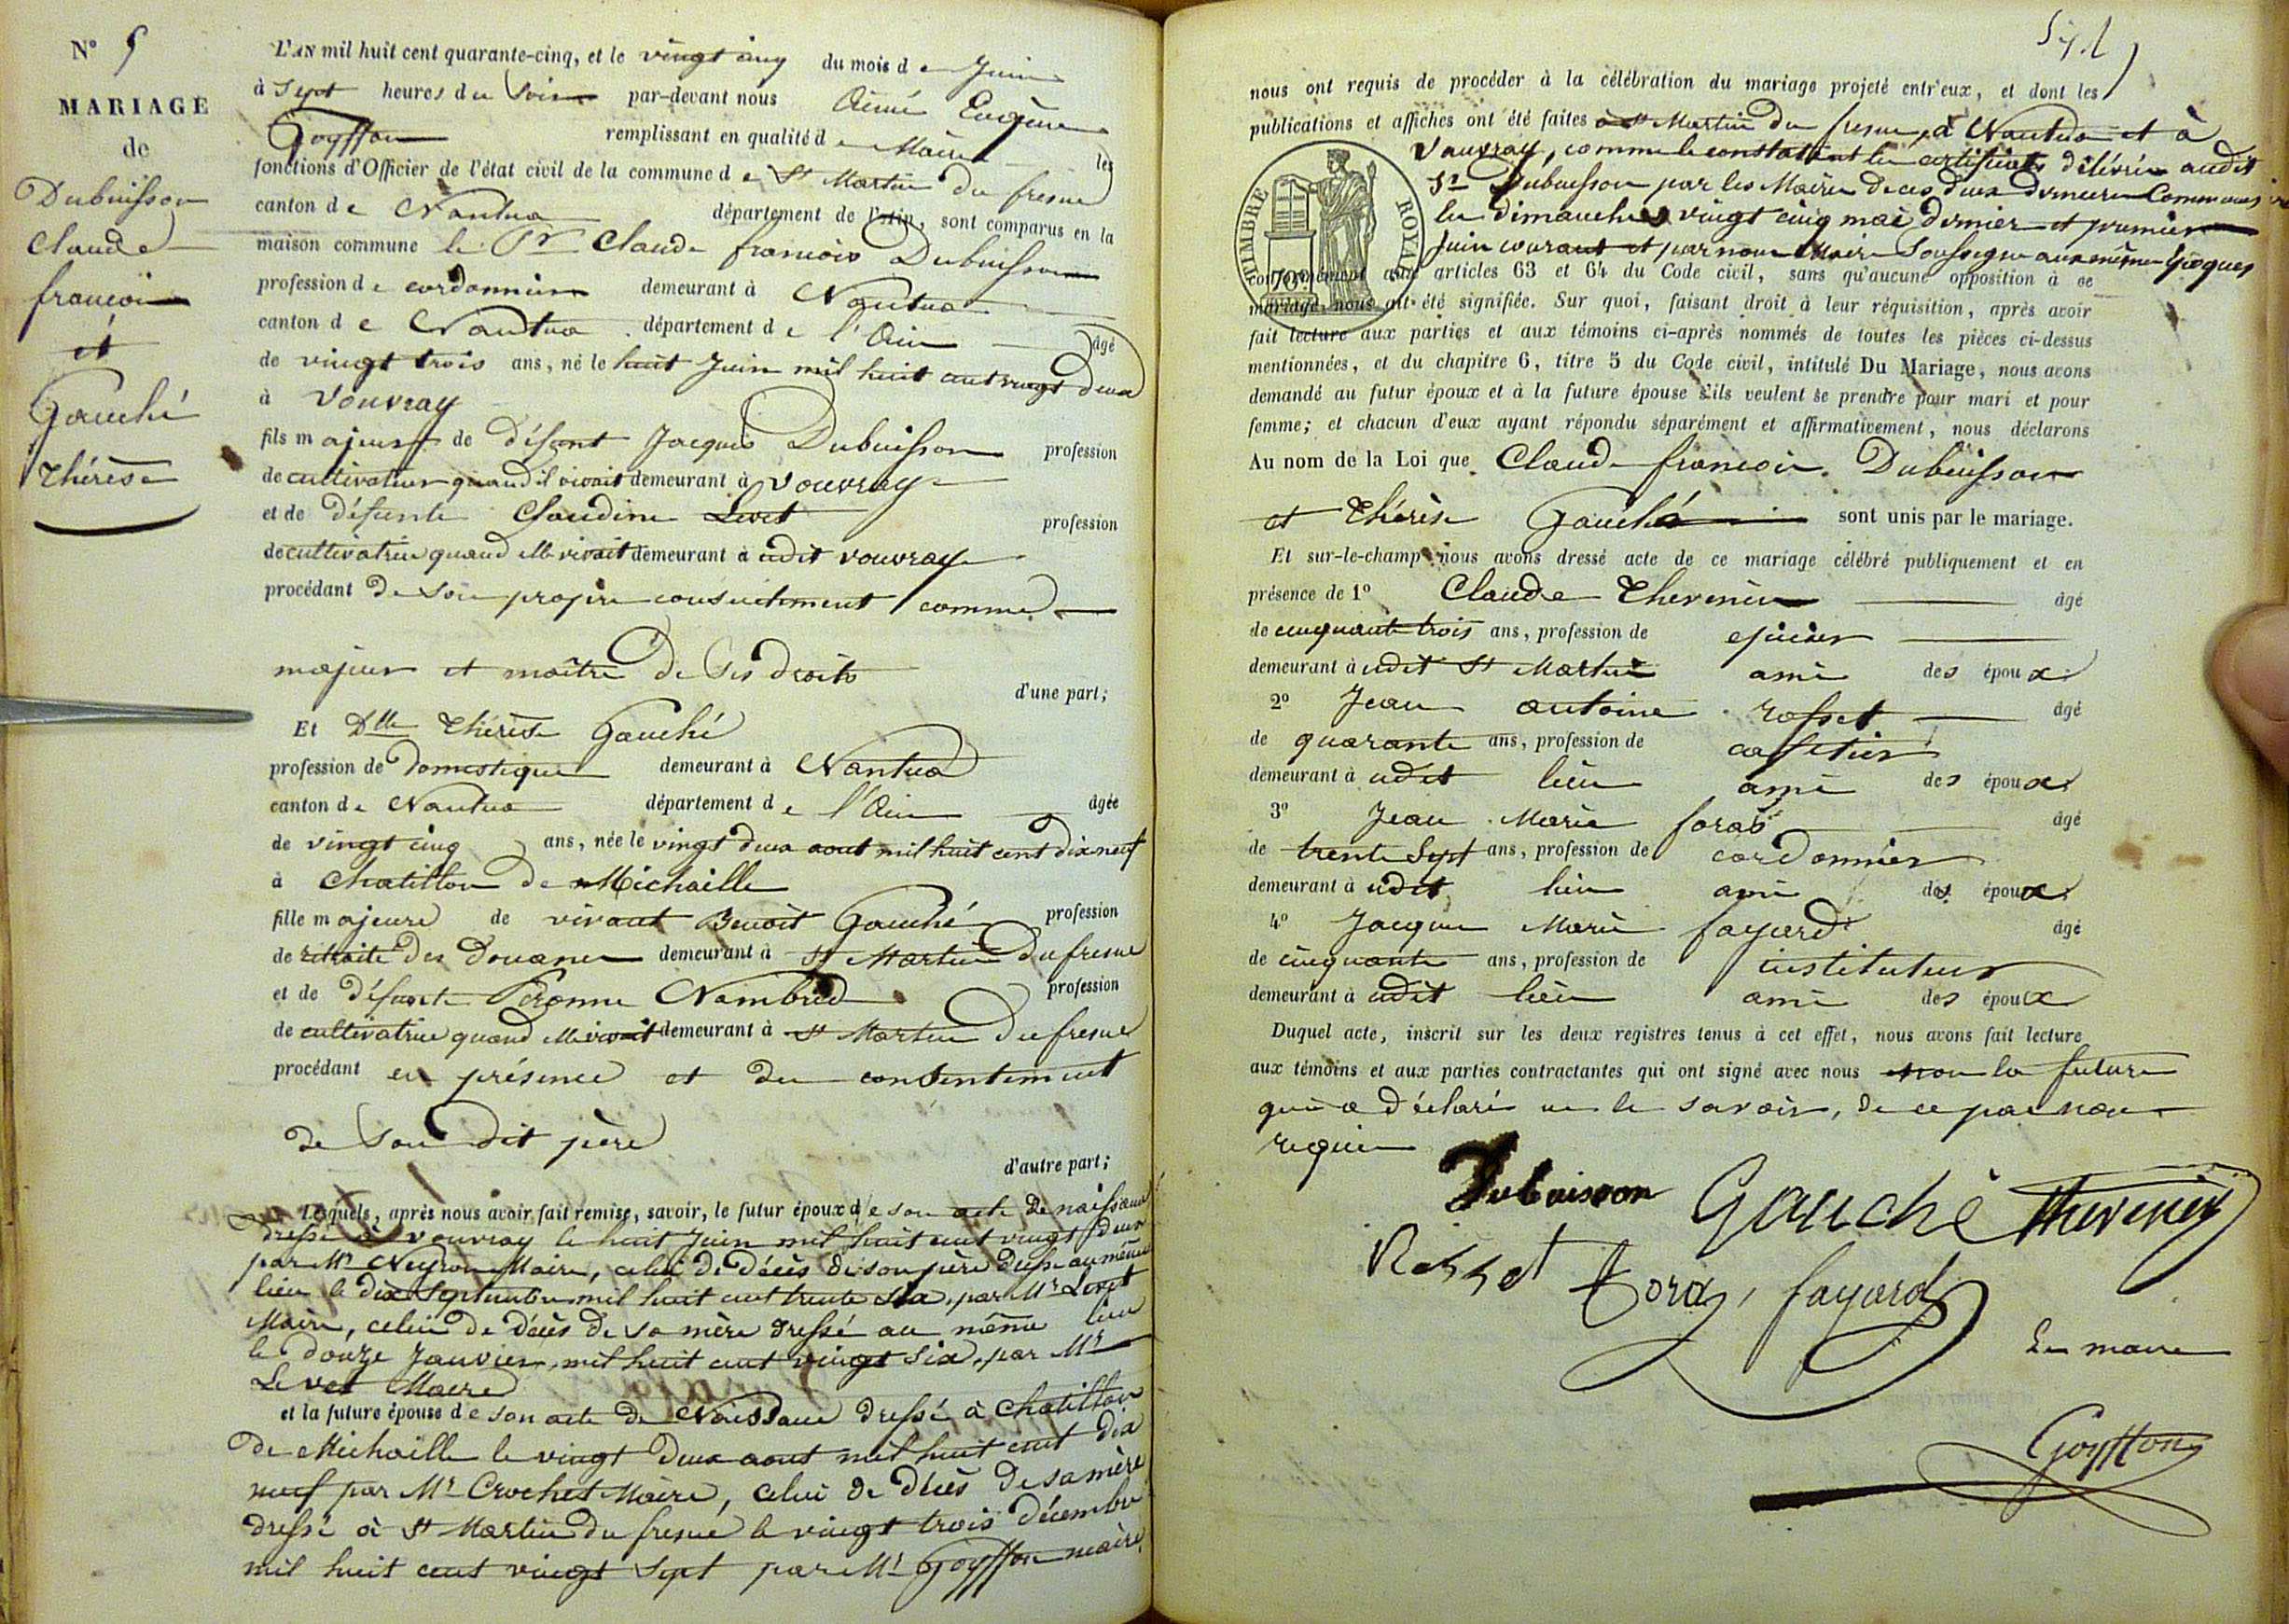 N° 5
MARIAGE
de
Dubuisson
Claude
françois
et
Gauché
Thérèse
L'AN mil huit cent quarante-cinq, et le vingt cinq du mois de Juin
à Sept heures du Soir par-devant nous Aimé Eugène
Goyffon remplissant en qualité de Maire les
fonctions d'Officier de l'état civil de la commune de St Martin du fresne
canton de Nantua département de l'Ain, sont comparus en la
maison commune le Sr Claude françois Dubuisson
profession de cordonnier demeurant à Nantua
canton de Nantua département de l'Ain âgé
de vingt trois ans, né le huit Juin mil huit cent vingt deux
à Vouvray
fils majeur de défunt Jacques Dubuisson profession
de cultivateur quand il vivait demeurant à Vouvray
et de défunte Claudine Levet profession
de cultivatrice quand elle vivait demeurant à udit vouvray
procédant de son propre consentement comme
majeur et maître de ses droits
d'une part;
Et Dlle Thérèse Gauché
profession de domestique demeurant à Nantua
canton de Nantua département de l'Ain âgée
de vingt cinq ans, née le vingt deux aout mil huit cent dix-neuf
à Chatillon de Michaille
fille majeure de vivant Benoit Gauché profession
de retraité des Douanes demeurant à St Martin du fresne
et de défunte Péronne Nambride profession
de cultivatrice quand elle vivait demeurant à St Martin du fresne
procédant en présence et du consentement
de son dit père
d'autre part;
Lesquels, après nous avoir fait remise, savoir, le futur époux de son acte de naissance
dressé à vouvray le huit Juin mil huit cent vingt deux
par Mr Neyron Maire, celui de décès de son père dressé au même
lieu le dix Septembre mil huit cent trente six, par Mr Levet
Maire, celui de décès de sa mère dressé au même lieu
le douze Janvier mil huit cent vingt six, par Mr
Levet Maire
et la future épouse de son acte de Naissance dressé à Chatillon
de Michaille le vingt deux aout mil huit cent dix
neuf par Mr Crochet Maire, celui de décès de sa mère
dressé à St Martin du fresne le vingt trois décembre
mil huit cent vingt sept par Mr Goyffon maire.
nous ont requis de procéder à la célébration du mariage projeté entr'eux, et dont les
publications et affiches ont été faites à St Martin du fresne, à Nantua et à
Vouvray, comme le constatent les certificats délivrés audit
Sr Dubuisson par les Maires de ces deux dernières Communes
les dimanches vingt cinq mai dernier et premier
Juin courant et par nous Maire Soussigné aux mêmes époques
TIMBRE ROYAL
conformément aux articles 63 et 64 du Code civil, sans qu'aucune opposition à ce
mariage nous ait été signifiée. Sur quoi, faisant droit à leur réquisition, après avoir
fait lecture aux parties et aux témoins ci-après nommés de toutes les pièces ci-dessus
mentionnées, et du chapitre 6, titre 5 du Code civil, intitulé Du Mariage, nous avons
demandé au futur époux et à la future épouse s'ils veulent se prendre pour mari et pour
femme; et chacun d'eux ayant répondu séparément et affirmativement, nous déclarons
Au nom de la Loi que Claude françois Dubuisson
et Thérèse Gauché sont unis par le mariage.
Et sur-le-champ nous avons dressé acte de ce mariage célébré publiquement et en
présence de 1° Claude Thevenin âgé
de cinquante trois ans, profession de epicier
demeurant à udit St Martin ami des époux
2° Jean antoine rosset âgé
de quarante ans, profession de cafetier
demeurant à udit lieu ami des époux
3° Jean Marie foras âgé
de trente Sept ans, profession de cordonnier
demeurant à udit lieu ami des époux
4° Jacques Marie fayard âgé
de cinquante ans, profession de instituteur
demeurant à udit lieu ami des époux
Duquel acte, inscrit sur les deux registres tenus à cet effet, nous avons fait lecture
aux témoins et aux parties contractantes qui ont signé avec nous non la future
qui a déclaré ne le savoir, de ce par nous
requise
Dubuisson Gauché Thevenin
Rosset foras fayard
Le maire
Goyffon